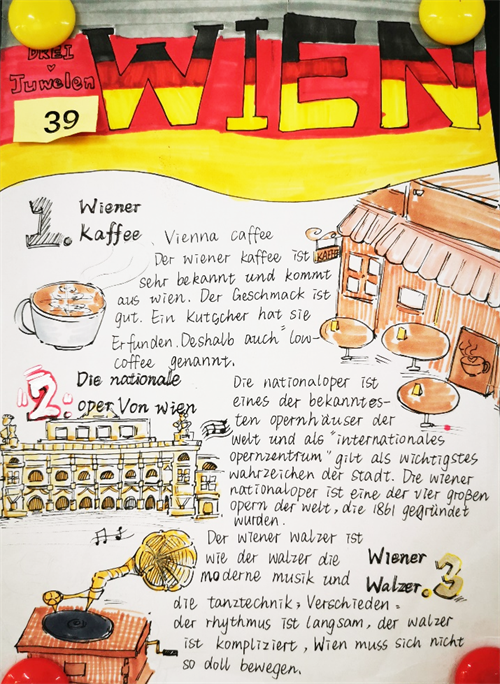 WIEN
DREI
Juwelen
39
1. Wiener
Kaffee、Vienna caffee
Der wiener kaffee ist
sehr bekannt und kommt
aus wien. Der Geschmack ist
gut. Ein Kutscher hat sie
Erfunden. Deshalb auch "low-
coffee genannt.
KAFFE
2. Die nationale
oper Von wien
Die nationaloper ist
eines der bekanntes-
ten opernhäuser der
welt und als "internationales
opernzentrum" gilt als wichtigstes
wahrzeichen der stadt. Die wiener
nationaloper ist eine der vier großen
opern der welt, die 1861 gegründet
wurden.
Wiener
Walzer. 3
Der wiener walzer ist
wie der walzer die
moderne musik und
die tanztechnik, Verschieden =
der rhythmus ist langsam, der walzer
ist kompliziert, Wien muss sich nicht
so doll bewegen.